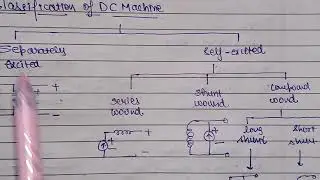 Classification of DC Machine
Separately
Excited
Self-excited
series
wound
shunt
wound
compound
wound
long
shunt
short
shunt
+
-
+
-
+
-